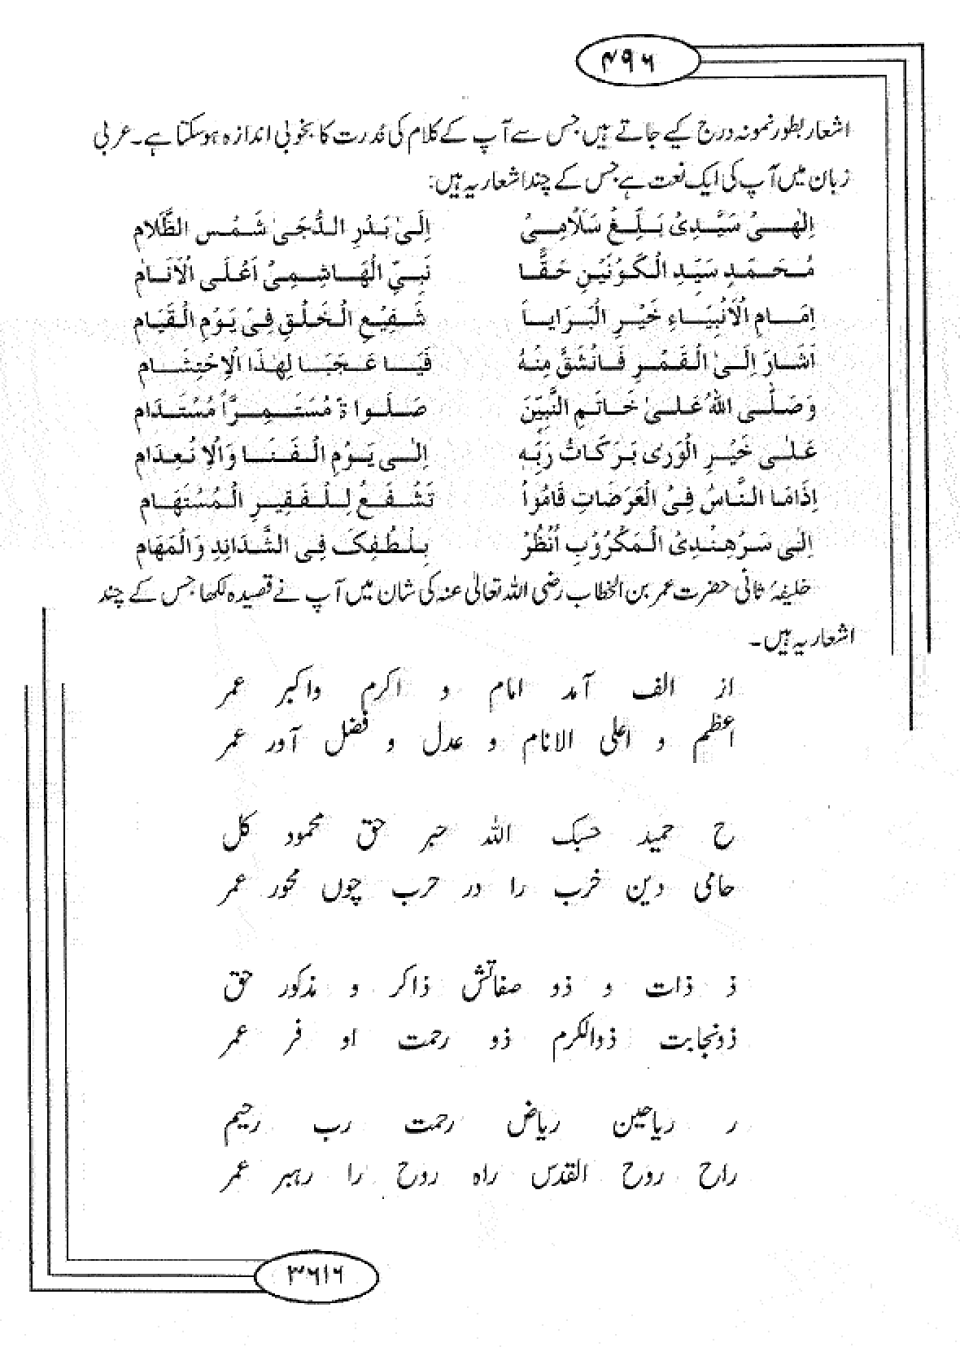 ۴۹۶
اشعار بطور نمونہ درج کیے جاتے ہیں جس سے آپ کے کلام کی نُدرت کا بخوبی اندازہ ہوسکتا ہے۔ عربی
زبان میں آپ کی ایک نعت ہے جس کے چند اشعار یہ ہیں:
اِلٰهِـىْ سَيِّدِىْ بَـلِّـغْ سَلَامِـىْ اِلَىٰ بَدْرِ الـدُّجَىٰ شَمْسِ الظَّلَامِ
مُـحَـمَّـدِ سَيِّدِ الْكَوْنَيْنِ حَقًّا نَبِيِّ الْهَاشِمِىْ اَعْلَى الْاَنَامِ
اِمَـامِ الْاَنْبِيَـاءِ خَيْرِ الْبَرَايَـا شَفِيْعِ الْخَلْقِ فِىْ يَوْمِ الْقِيَامِ
اَشَارَ اِلَىٰ الْقَمَرِ فَانْشَقَّ مِنْهُ فَيَـا عَجَبَـا لِهٰذَا الْاِحْتِشَامِ
وَصَلَّـى اللّٰهُ عَلـىٰ خَـاتَمِ النَّبِيِّنَ صَلَوا ةً مُسْتَمِرًّا مُسْتَدَامِ
عَلـىٰ خَيْرِ الْوَرىٰ بَرَكَاتُ رَبِّهٖ اِلٰـى يَوْمِ الْفَنَـا وَالْاِ نْعِدَامِ
اِذَامَا النَّاسُ فِىْ الْعَرَضَاتِ قَامُوْا تَشْفَعُ لِلْفَقِيْرِ الْمُسْتَهَامِ
اِلٰى سَرْهِنْدِىْ الْمَكْرُوْبِ اُنْظُرْ بِلُطْفِكَ فِى الشَّدَائِدِ وَالْمَهَامِ
خلیفۂ ثانی حضرت عمر بن الخطاب رضی اللہ تعالیٰ عنہ کی شان میں آپ نے قصیدہ لکھا جس کے چند
اشعار یہ ہیں۔
از الف آمد امام و اکرم واکبر عمر
اعظم و اعلی الانام و عدل و فضل آور عمر
ح حمید حسبک اللہ حبر حق محمود کل
حامی دین خرب را در حرب چوں محور عمر
ذ ذات و ذو صفاتش ذاکر و مذکور حق
ذونجابت ذوالکرم ذو رحمت او فر عمر
ر ریاحین ریاض رحمت رب رحیم
راح روح القدس راہ روح را رہبر عمر
۳۶۱۶